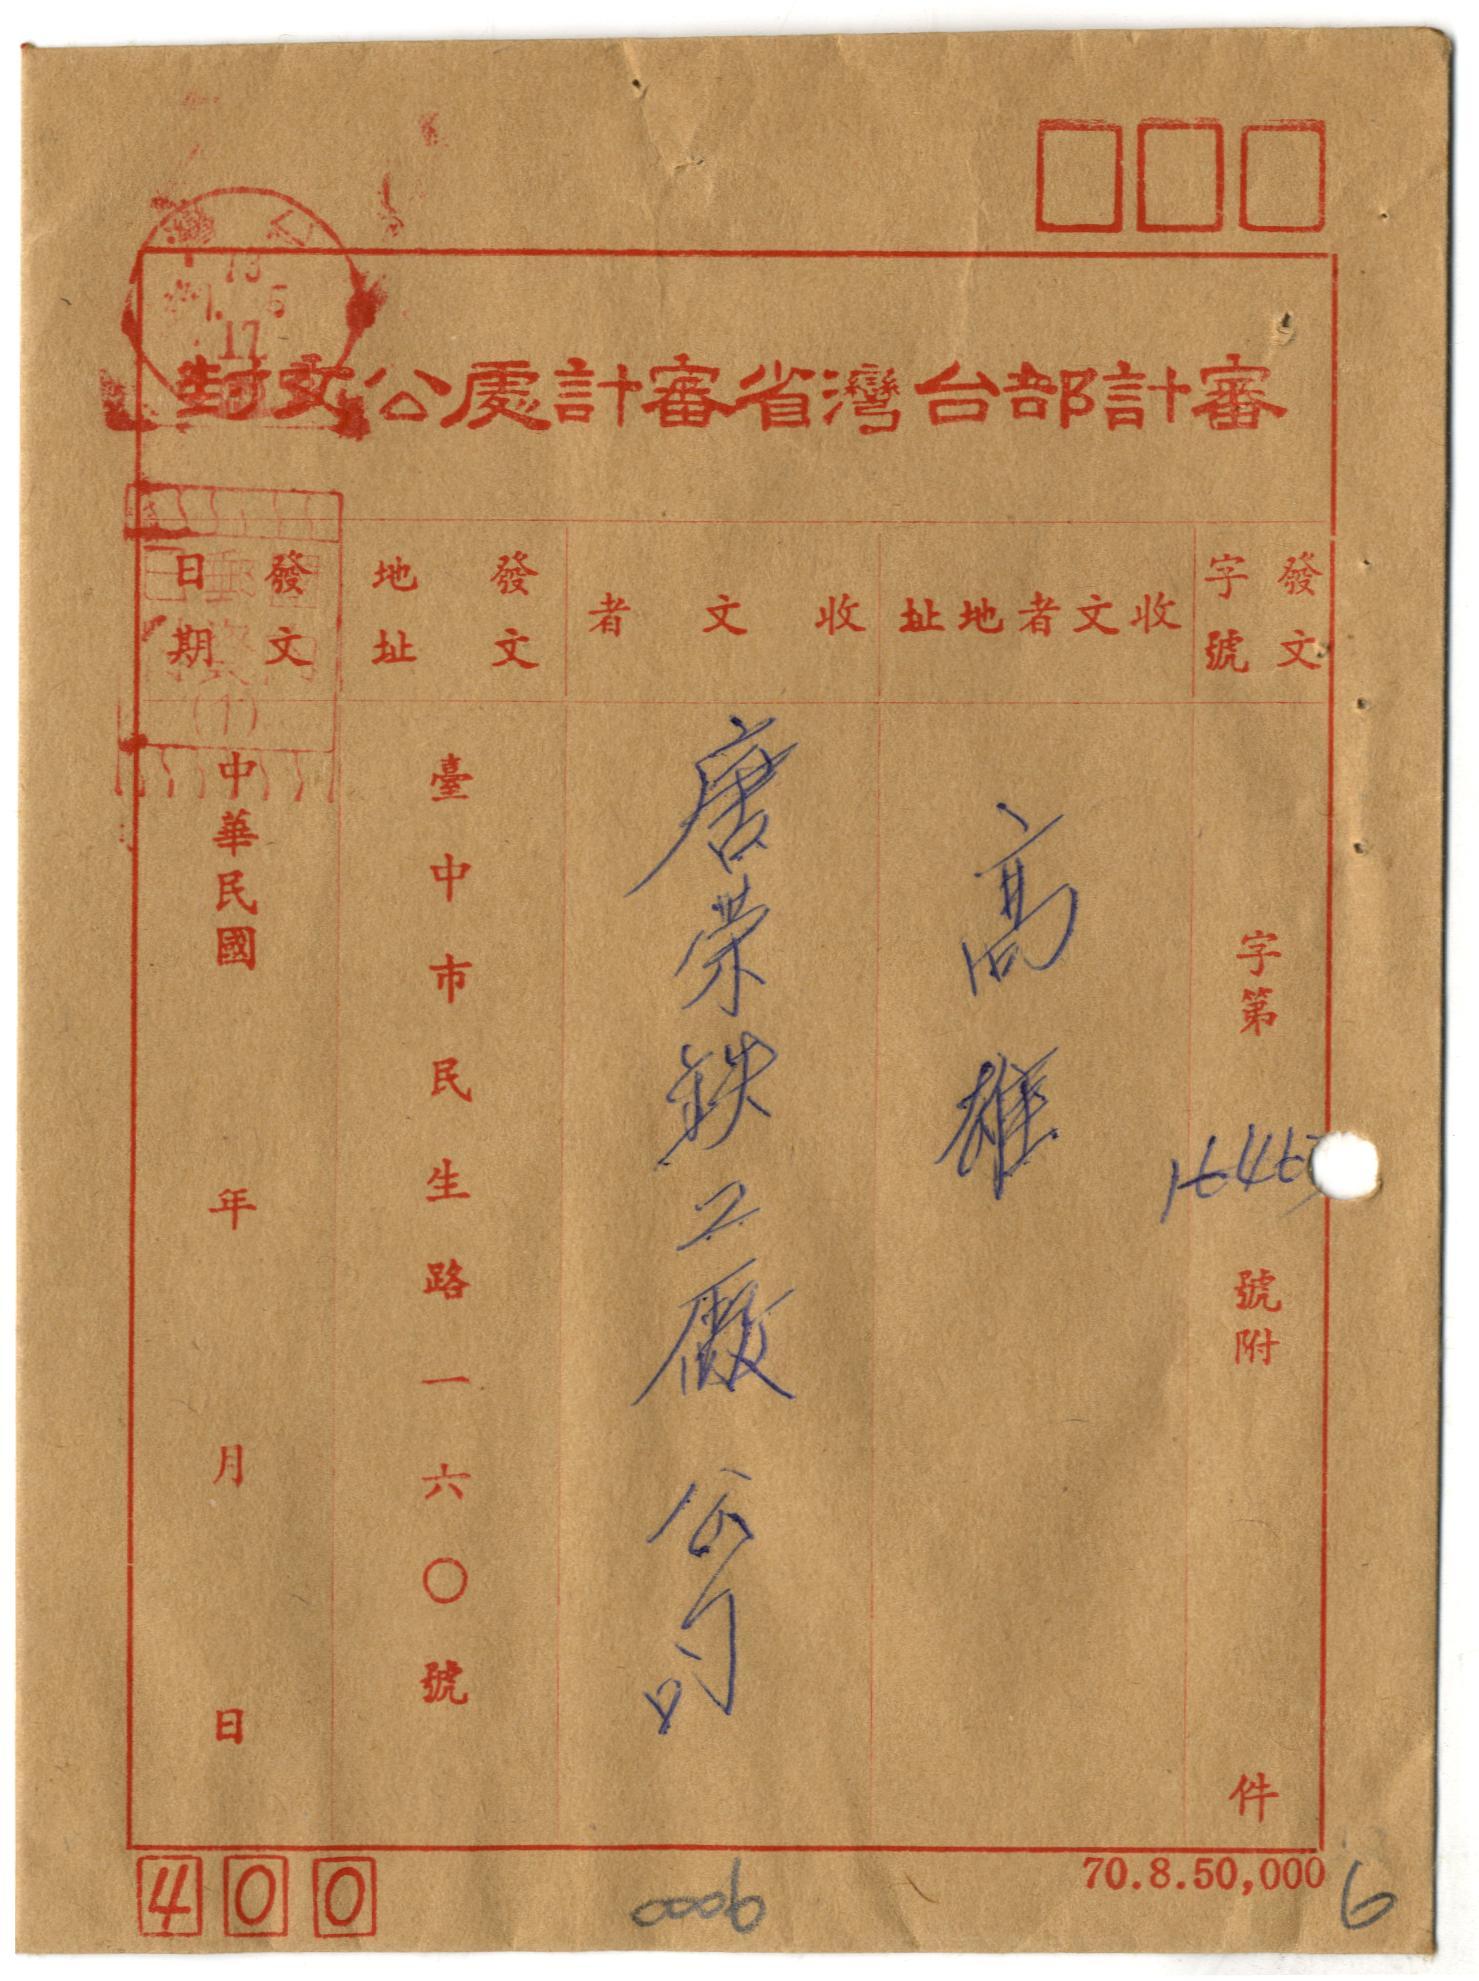 審計部台灣省審計處公文封
發文字號
字第
號附
件
收文者地址
高雄
收文者
唐荣鉄工廠公司
發文地址
臺中市民生路一六〇號
發文日期
中華民國 年 月 日
73
17
(1)
400
0006
70.8.50,000
6